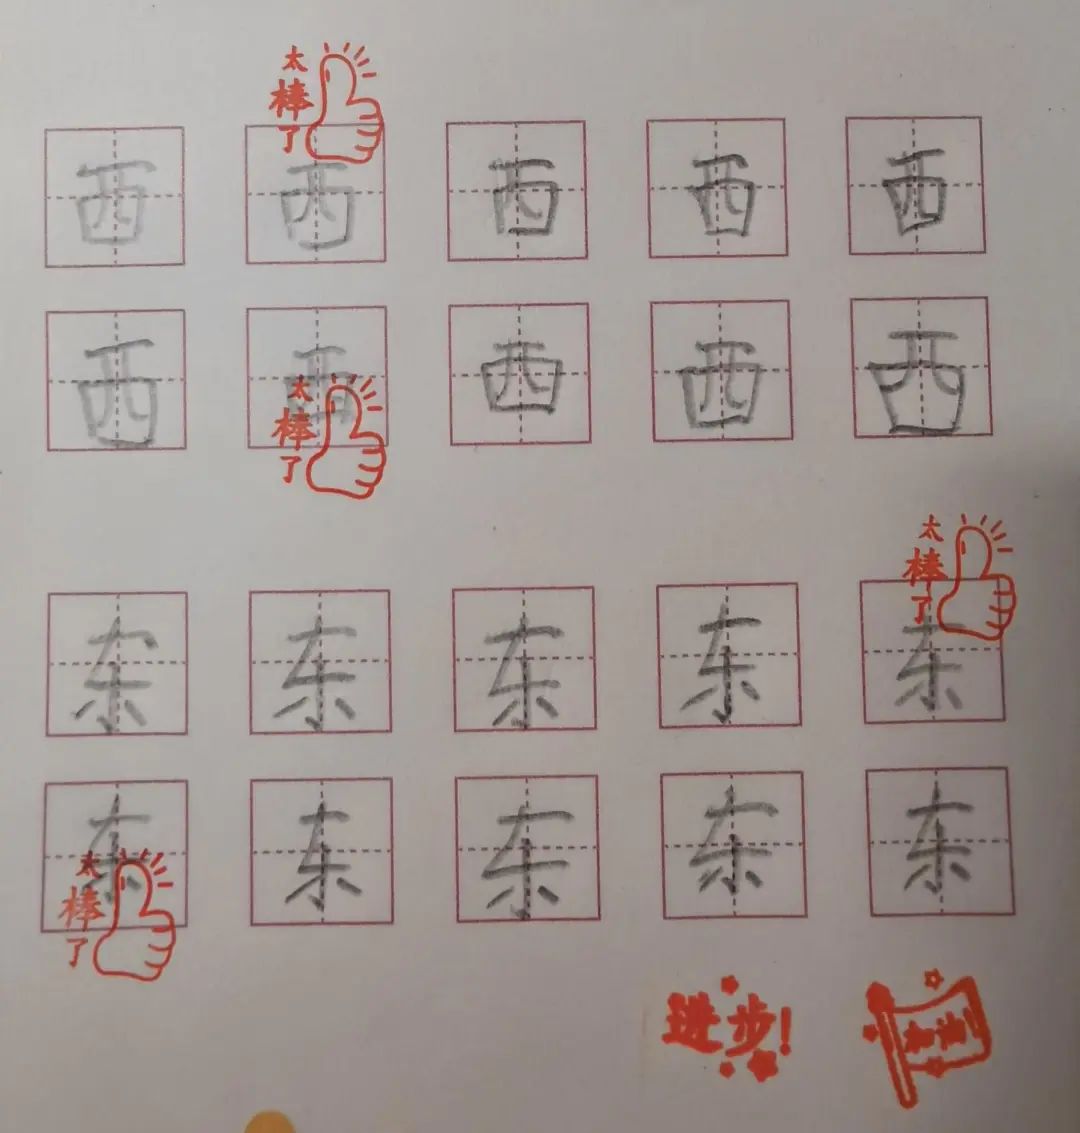 太棒了
西 西 西 西 西
西 西 西 西 西
太棒了
太棒了
东 东 东 东 东
东 东 东 东 东
太棒了
进步!